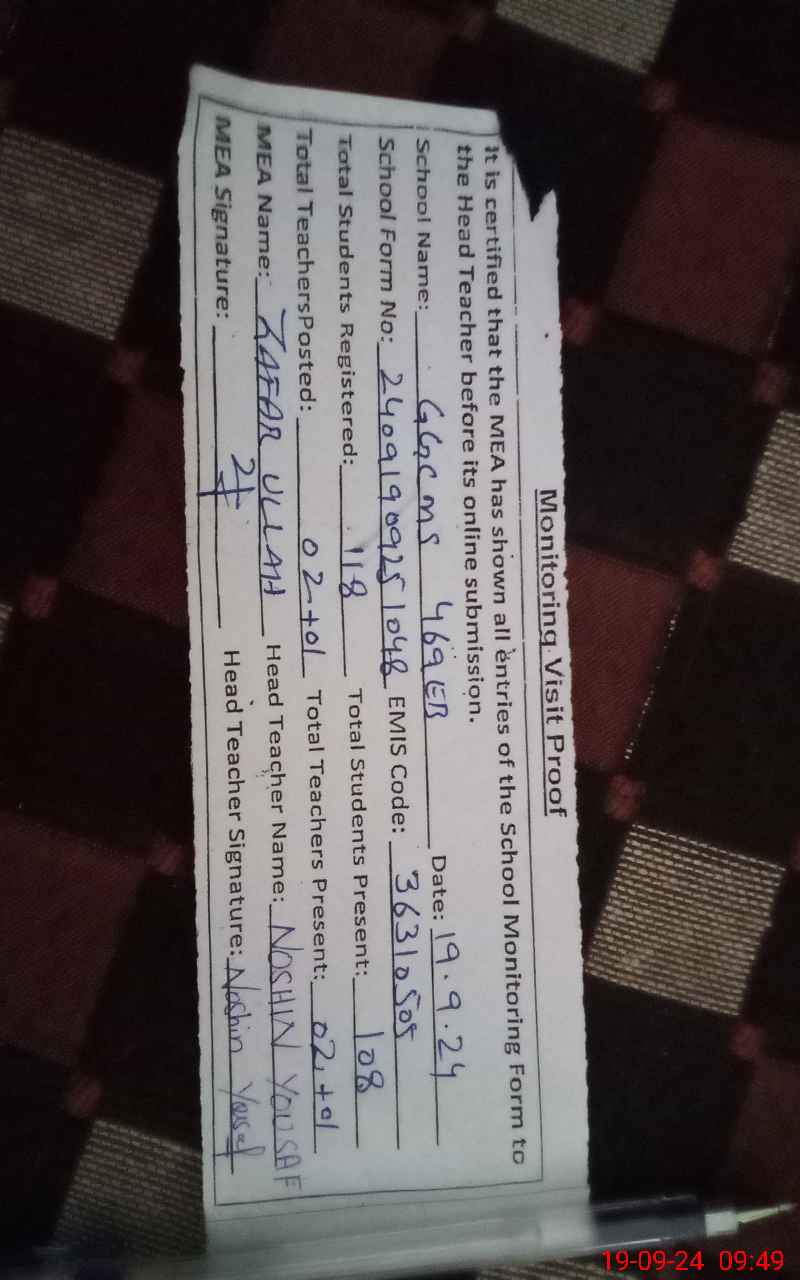 Monitoring Visit Proof
It is certified that the MEA has shown all entries of the School Monitoring Form to
the Head Teacher before its online submission.
School Name: GGCMS 469 EB Date: 19.9.24
School Form No: 24091909251048 EMIS Code: 36310505
Total Students Registered: 118 Total Students Present: 108
Total TeachersPosted: 02+01 Total Teachers Present: 02+01
MEA Name: ZAFAR ULLAH Head Teacher Name: NOSHIN YOUSAF
MEA Signature: Head Teacher Signature: Noshin Yousaf
19-09-24 09:49